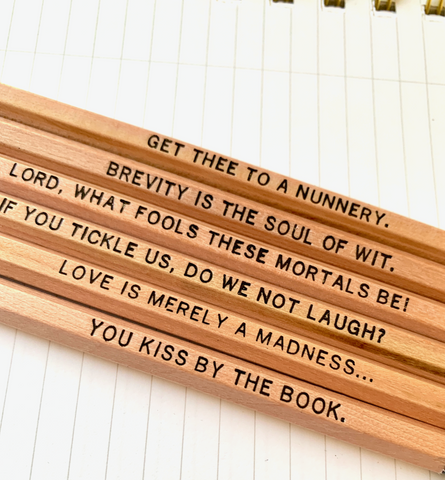 GET THEE TO A NUNNERY.
BREVITY IS THE SOUL OF WIT.
LORD, WHAT FOOLS THESE MORTALS BE!
IF YOU TICKLE US, DO WE NOT LAUGH?
LOVE IS MERELY A MADNESS...
YOU KISS BY THE BOOK.